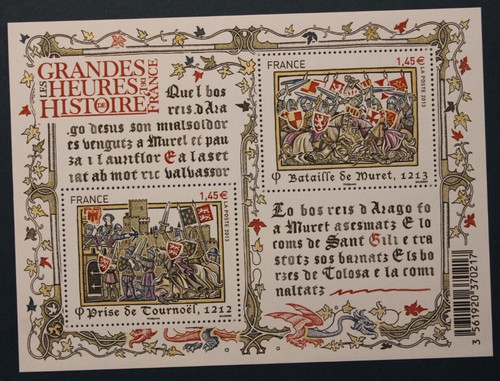 LES
GRANDES
HEURES DE
L'HISTOIRE
DE FRANCE
Quel bos
reis d'Ara
.go desus son mialsoldor
es vengutz a Murel et pau
za i l'auriflor E a laset
iat ab mot ric valvassor
FRANCE
1,45€
LA POSTE 2013
φ Bataille de Muret, 1213
FRANCE
1,45€
LA POSTE 2013
φ Prise de Tournoël, 1212
Lo bos reis d'Arago fo
a Muret asesmatz E lo
coms de Sant Gili e tra
stotz sos barnatz Els bo
rzes de Tolosa e la comi
naltatz
3 561920 370217